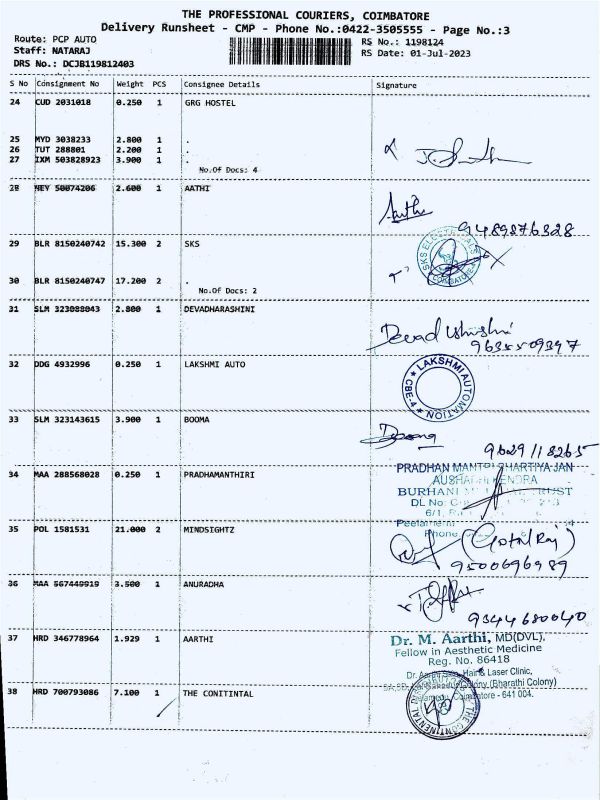 THE PROFESSIONAL COURIERS, COIMBATORE
Delivery Runsheet - CMP - Phone No.:0422-3505555 - Page No.:3
Route: PCP AUTO
RS No.: 1198124
Staff: NATARAJ
RS Date: 01-Jul-2023
DRS No.: DCJB119812403
S No Consignment No Weight PCS Consignee Details Signature
24 CUD 2031018 0.250 1 GRG HOSTEL
25 MYD 3038233 2.800 1 .
26 TUT 288801 2.200 1 .
27 IXM 503828923 3.900 1 .
No.Of Docs: 4
28 HEY 50074206 2.600 1 AATHI
9489876328
29 BLR 8150240742 15.300 2 SKS
SKS ELECTRICALS
COIMBATORE
30 BLR 8150240747 17.200 2 .
No.Of Docs: 2
31 SLM 323088043 2.800 1 DEVADHARASHINI
9635509397
32 DDG 4932996 0.250 1 LAKSHMI AUTO
LAKSHMI AUTOMATION
CBE-4
33 SLM 323143615 3.900 1 BOOMA
9629118265
34 MAA 288568028 0.250 1 PRADHAMANTHIRI
PRADHAN MANTRI BHARTIYA JAN
AUSHADHI KENDRA
BURHANI TRUST
DL No:
Peelamedu
Phone
35 POL 1581531 21.000 2 MINDSIGHTZ
(Gotal Raj)
9500696989
36 MAA 567449919 3.500 1 ANURADHA
9344680040
37 HRD 346778964 1.929 1 AARTHI
Dr. M. Aarthi, MD(DVL),
Fellow in Aesthetic Medicine
Reg. No. 86418
Dr. Aarthi Skin, Hair & Laser Clinic,
Colony (Bharathi Colony)
Peelamedu, Coimbatore - 641 004.
38 HRD 700793086 7.100 1 THE CONITINTAL
THE CONTINENTAL